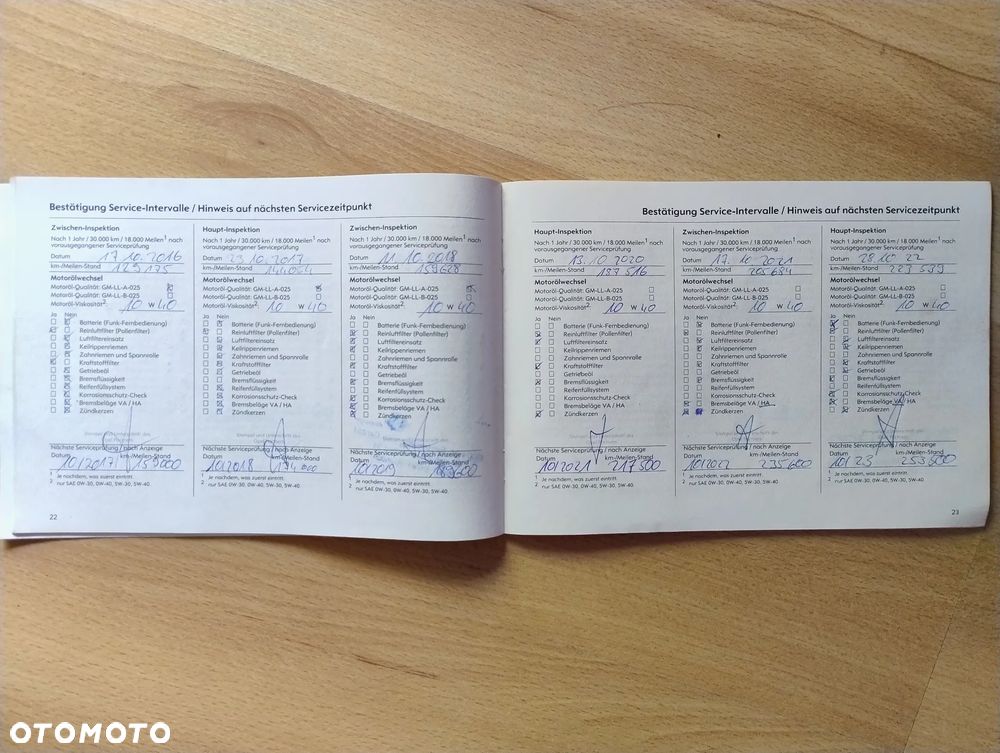 Bestätigung Service-Intervalle / Hinweis auf nächsten Servicezeitpunkt
Zwischen-Inspektion
Nach 1 Jahr / 30.000 km / 18.000 Meilen1 nach
vorausgegangener Serviceprüfung
Datum 17.10.2016
km-/Meilen-Stand 129175
Motorölwechsel
Motoröl-Qualität: GM-LL-A-025
Motoröl-Qualität: GM-LL-B-025
Motoröl-Viskosität2: 10 w 40
Ja Nein
Batterie (Funk-Fernbedienung)
Reinluftfilter (Pollenfilter)
Luftfiltereinsatz
Keilrippenriemen
Zahnriemen und Spannrolle
Kraftstofffilter
Getriebeöl
Bremsflüssigkeit
Reifenfüllsystem
Korrosionsschutz-Check
Bremsbeläge VA / HA
Zündkerzen
Nächste Serviceprüfung / nach Anzeige
Datum km-/Meilen-Stand
10/2017 159000
1 Je nachdem, was zuerst eintritt.
2 nur SAE 0W-30, 0W-40, 5W-30, 5W-40
22
Haupt-Inspektion
Nach 1 Jahr / 30.000 km / 18.000 Meilen1 nach
vorausgegangener Serviceprüfung
Datum 23.10.2017
km-/Meilen-Stand
Motorölwechsel
Motoröl-Qualität: GM-LL-A-025
Motoröl-Qualität: GM-LL-B-025
Motoröl-Viskosität2: 10 w 40
Ja Nein
Batterie (Funk-Fernbedienung)
Reinluftfilter (Pollenfilter)
Luftfiltereinsatz
Keilrippenriemen
Zahnriemen und Spannrolle
Kraftstofffilter
Getriebeöl
Bremsflüssigkeit
Reifenfüllsystem
Korrosionsschutz-Check
Bremsbeläge VA / HA
Zündkerzen
Nächste Serviceprüfung / nach Anzeige
Datum km-/Meilen-Stand
10/2018
1 Je nachdem, was zuerst eintritt.
2 nur SAE 0W-30, 0W-40, 5W-30, 5W-40
Zwischen-Inspektion
Nach 1 Jahr / 30.000 km / 18.000 Meilen1 nach
vorausgegangener Serviceprüfung
Datum 11.10.2018
km-/Meilen-Stand 159628
Motorölwechsel
Motoröl-Qualität: GM-LL-A-025
Motoröl-Qualität: GM-LL-B-025
Motoröl-Viskosität2: 10 w 40
Ja Nein
Batterie (Funk-Fernbedienung)
Reinluftfilter (Pollenfilter)
Luftfiltereinsatz
Keilrippenriemen
Zahnriemen und Spannrolle
Kraftstofffilter
Getriebeöl
Bremsflüssigkeit
Reifenfüllsystem
Korrosionsschutz-Check
Bremsbeläge VA / HA
Zündkerzen
Nächste Serviceprüfung / nach Anzeige
Datum km-/Meilen-Stand
10/2019
1 Je nachdem, was zuerst eintritt.
2 nur SAE 0W-30, 0W-40, 5W-30, 5W-40
Bestätigung Service-Intervalle / Hinweis auf nächsten Servicezeitpunkt
Haupt-Inspektion
Nach 1 Jahr / 30.000 km / 18.000 Meilen1 nach
vorausgegangener Serviceprüfung
Datum 13.10 2020
km-/Meilen-Stand 187516
Motorölwechsel
Motoröl-Qualität: GM-LL-A-025
Motoröl-Qualität: GM-LL-B-025
Motoröl-Viskosität2: 10 w 40
Ja Nein
Batterie (Funk-Fernbedienung)
Reinluftfilter (Pollenfilter)
Luftfiltereinsatz
Keilrippenriemen
Zahnriemen und Spannrolle
Kraftstofffilter
Getriebeöl
Bremsflüssigkeit
Reifenfüllsystem
Korrosionsschutz-Check
Bremsbeläge VA / HA
Zündkerzen
Nächste Serviceprüfung / nach Anzeige
Datum km-/Meilen-Stand
10/2021 217500
1 Je nachdem, was zuerst eintritt.
2 nur SAE 0W-30, 0W-40, 5W-30, 5W-40
Zwischen-Inspektion
Nach 1 Jahr / 30.000 km / 18.000 Meilen1 nach
vorausgegangener Serviceprüfung
Datum 17.10 2021
km-/Meilen-Stand 205684
Motorölwechsel
Motoröl-Qualität: GM-LL-A-025
Motoröl-Qualität: GM-LL-B-025
Motoröl-Viskosität2: 10 w 40
Ja Nein
Batterie (Funk-Fernbedienung)
Reinluftfilter (Pollenfilter)
Luftfiltereinsatz
Keilrippenriemen
Zahnriemen und Spannrolle
Kraftstofffilter
Getriebeöl
Bremsflüssigkeit
Reifenfüllsystem
Korrosionsschutz-Check
Bremsbeläge VA / HA
Zündkerzen
Nächste Serviceprüfung / nach Anzeige
Datum km-/Meilen-Stand
10/2022 235600
1 Je nachdem, was zuerst eintritt.
2 nur SAE 0W-30, 0W-40, 5W-30, 5W-40
Haupt-Inspektion
Nach 1 Jahr / 30.000 km / 18.000 Meilen1 nach
vorausgegangener Serviceprüfung
Datum 28.10 22
km-/Meilen-Stand 223539
Motorölwechsel
Motoröl-Qualität: GM-LL-A-025
Motoröl-Qualität: GM-LL-B-025
Motoröl-Viskosität2: 10 w 40
Ja Nein
Batterie (Funk-Fernbedienung)
Reinluftfilter (Pollenfilter)
Luftfiltereinsatz
Keilrippenriemen
Zahnriemen und Spannrolle
Kraftstofffilter
Getriebeöl
Bremsflüssigkeit
Reifenfüllsystem
Korrosionsschutz-Check
Bremsbeläge VA / HA
Zündkerzen
Nächste Serviceprüfung / nach Anzeige
Datum km-/Meilen-Stand
10/23 253500
1 Je nachdem, was zuerst eintritt.
2 nur SAE 0W-30, 0W-40, 5W-30, 5W-40
23
OTOMOTO